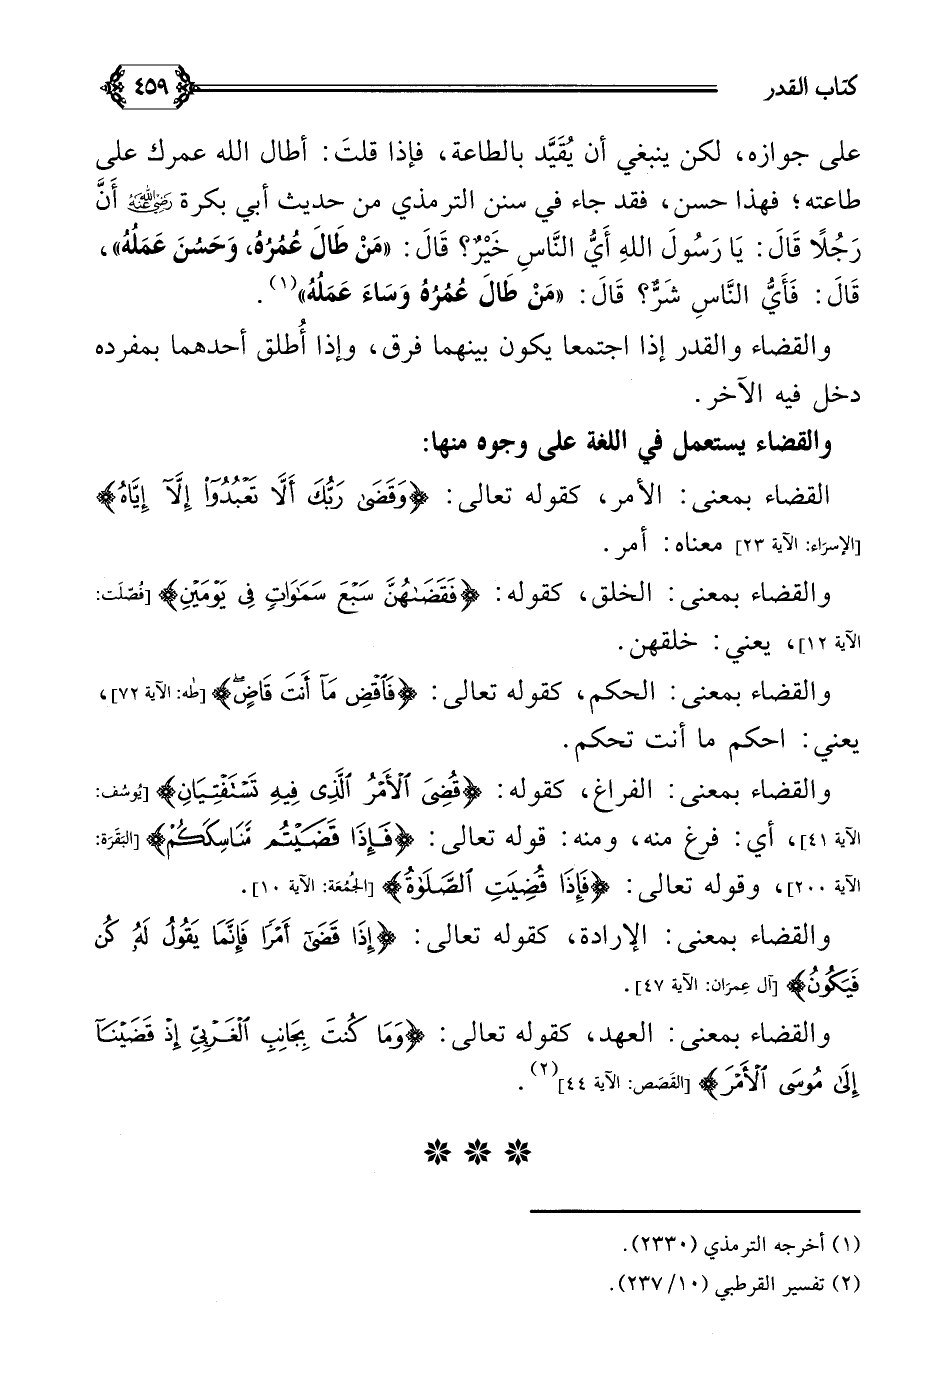 كتاب القدر ٤٥٩
على جوازه، لكن ينبغي أن يُقَيَّد بالطاعة، فإذا قلتَ: أطال الله عمرك على
طاعته؛ فهذا حسن، فقد جاء في سنن الترمذي من حديث أبي بكرة رضي الله عنه أَنَّ
رَجُلًا قَالَ: يَا رَسُولَ اللهِ أَيُّ النَّاسِ خَيْرٌ؟ قَالَ: «مَنْ طَالَ عُمُرُهُ، وَحَسُنَ عَمَلُهُ»،
قَالَ: فَأَيُّ النَّاسِ شَرٌّ؟ قَالَ: «مَنْ طَالَ عُمُرُهُ وَسَاءَ عَمَلُهُ»(١).
والقضاء والقدر إذا اجتمعا يكون بينهما فرق، وإذا أُطلق أحدهما بمفرده
دخل فيه الآخر.
والقضاء يستعمل في اللغة على وجوه منها:
القضاء بمعنى: الأمر، كقوله تعالى: ﴿وَقَضَىٰ رَبُّكَ أَلَّا تَعْبُدُوٓا۟ إِلَّآ إِيَّاهُ﴾
[الإسرَاء: الآية ٢٣] معناه: أمر.
والقضاء بمعنى: الخلق، كقوله: ﴿فَقَضَىٰهُنَّ سَبْعَ سَمَٰوَاتٍ فِى يَوْمَيْنِ﴾ [فُصّلَت:
الآية ١٢]، يعني: خلقهن.
والقضاء بمعنى: الحكم، كقوله تعالى: ﴿فَٱقْضِ مَآ أَنتَ قَاضٍۖ﴾ [طٰه: الآية ٧٢]،
يعني: احكم ما أنت تحكم.
والقضاء بمعنى: الفراغ، كقوله: ﴿قُضِىَ ٱلْأَمْرُ ٱلَّذِى فِيهِ تَسْتَفْتِيَانِ﴾ [يُوسُف:
الآية ٤١]، أي: فرغ منه، ومنه: قوله تعالى: ﴿فَإِذَا قَضَيْتُم مَّنَاسِكَكُمْ﴾ [البَقَرَة:
الآية ٢٠٠]، وقوله تعالى: ﴿فَإِذَا قُضِيَتِ ٱلصَّلَوٰةُ﴾ [الجُمُعَة: الآية ١٠].
والقضاء بمعنى: الإرادة، كقوله تعالى: ﴿إِذَا قَضَىٰٓ أَمْرًا فَإِنَّمَا يَقُولُ لَهُۥ كُن
فَيَكُونُ﴾ [آل عِمرَان: الآية ٤٧].
والقضاء بمعنى: العهد، كقوله تعالى: ﴿وَمَا كُنتَ بِجَانِبِ ٱلْغَرْبِىِّ إِذْ قَضَيْنَآ
إِلَىٰ مُوسَى ٱلْأَمْرَ﴾ [القَصَص: الآية ٤٤](٢).
(١) أخرجه الترمذي (٢٣٣٠).
(٢) تفسير القرطبي (١٠/٢٣٧).